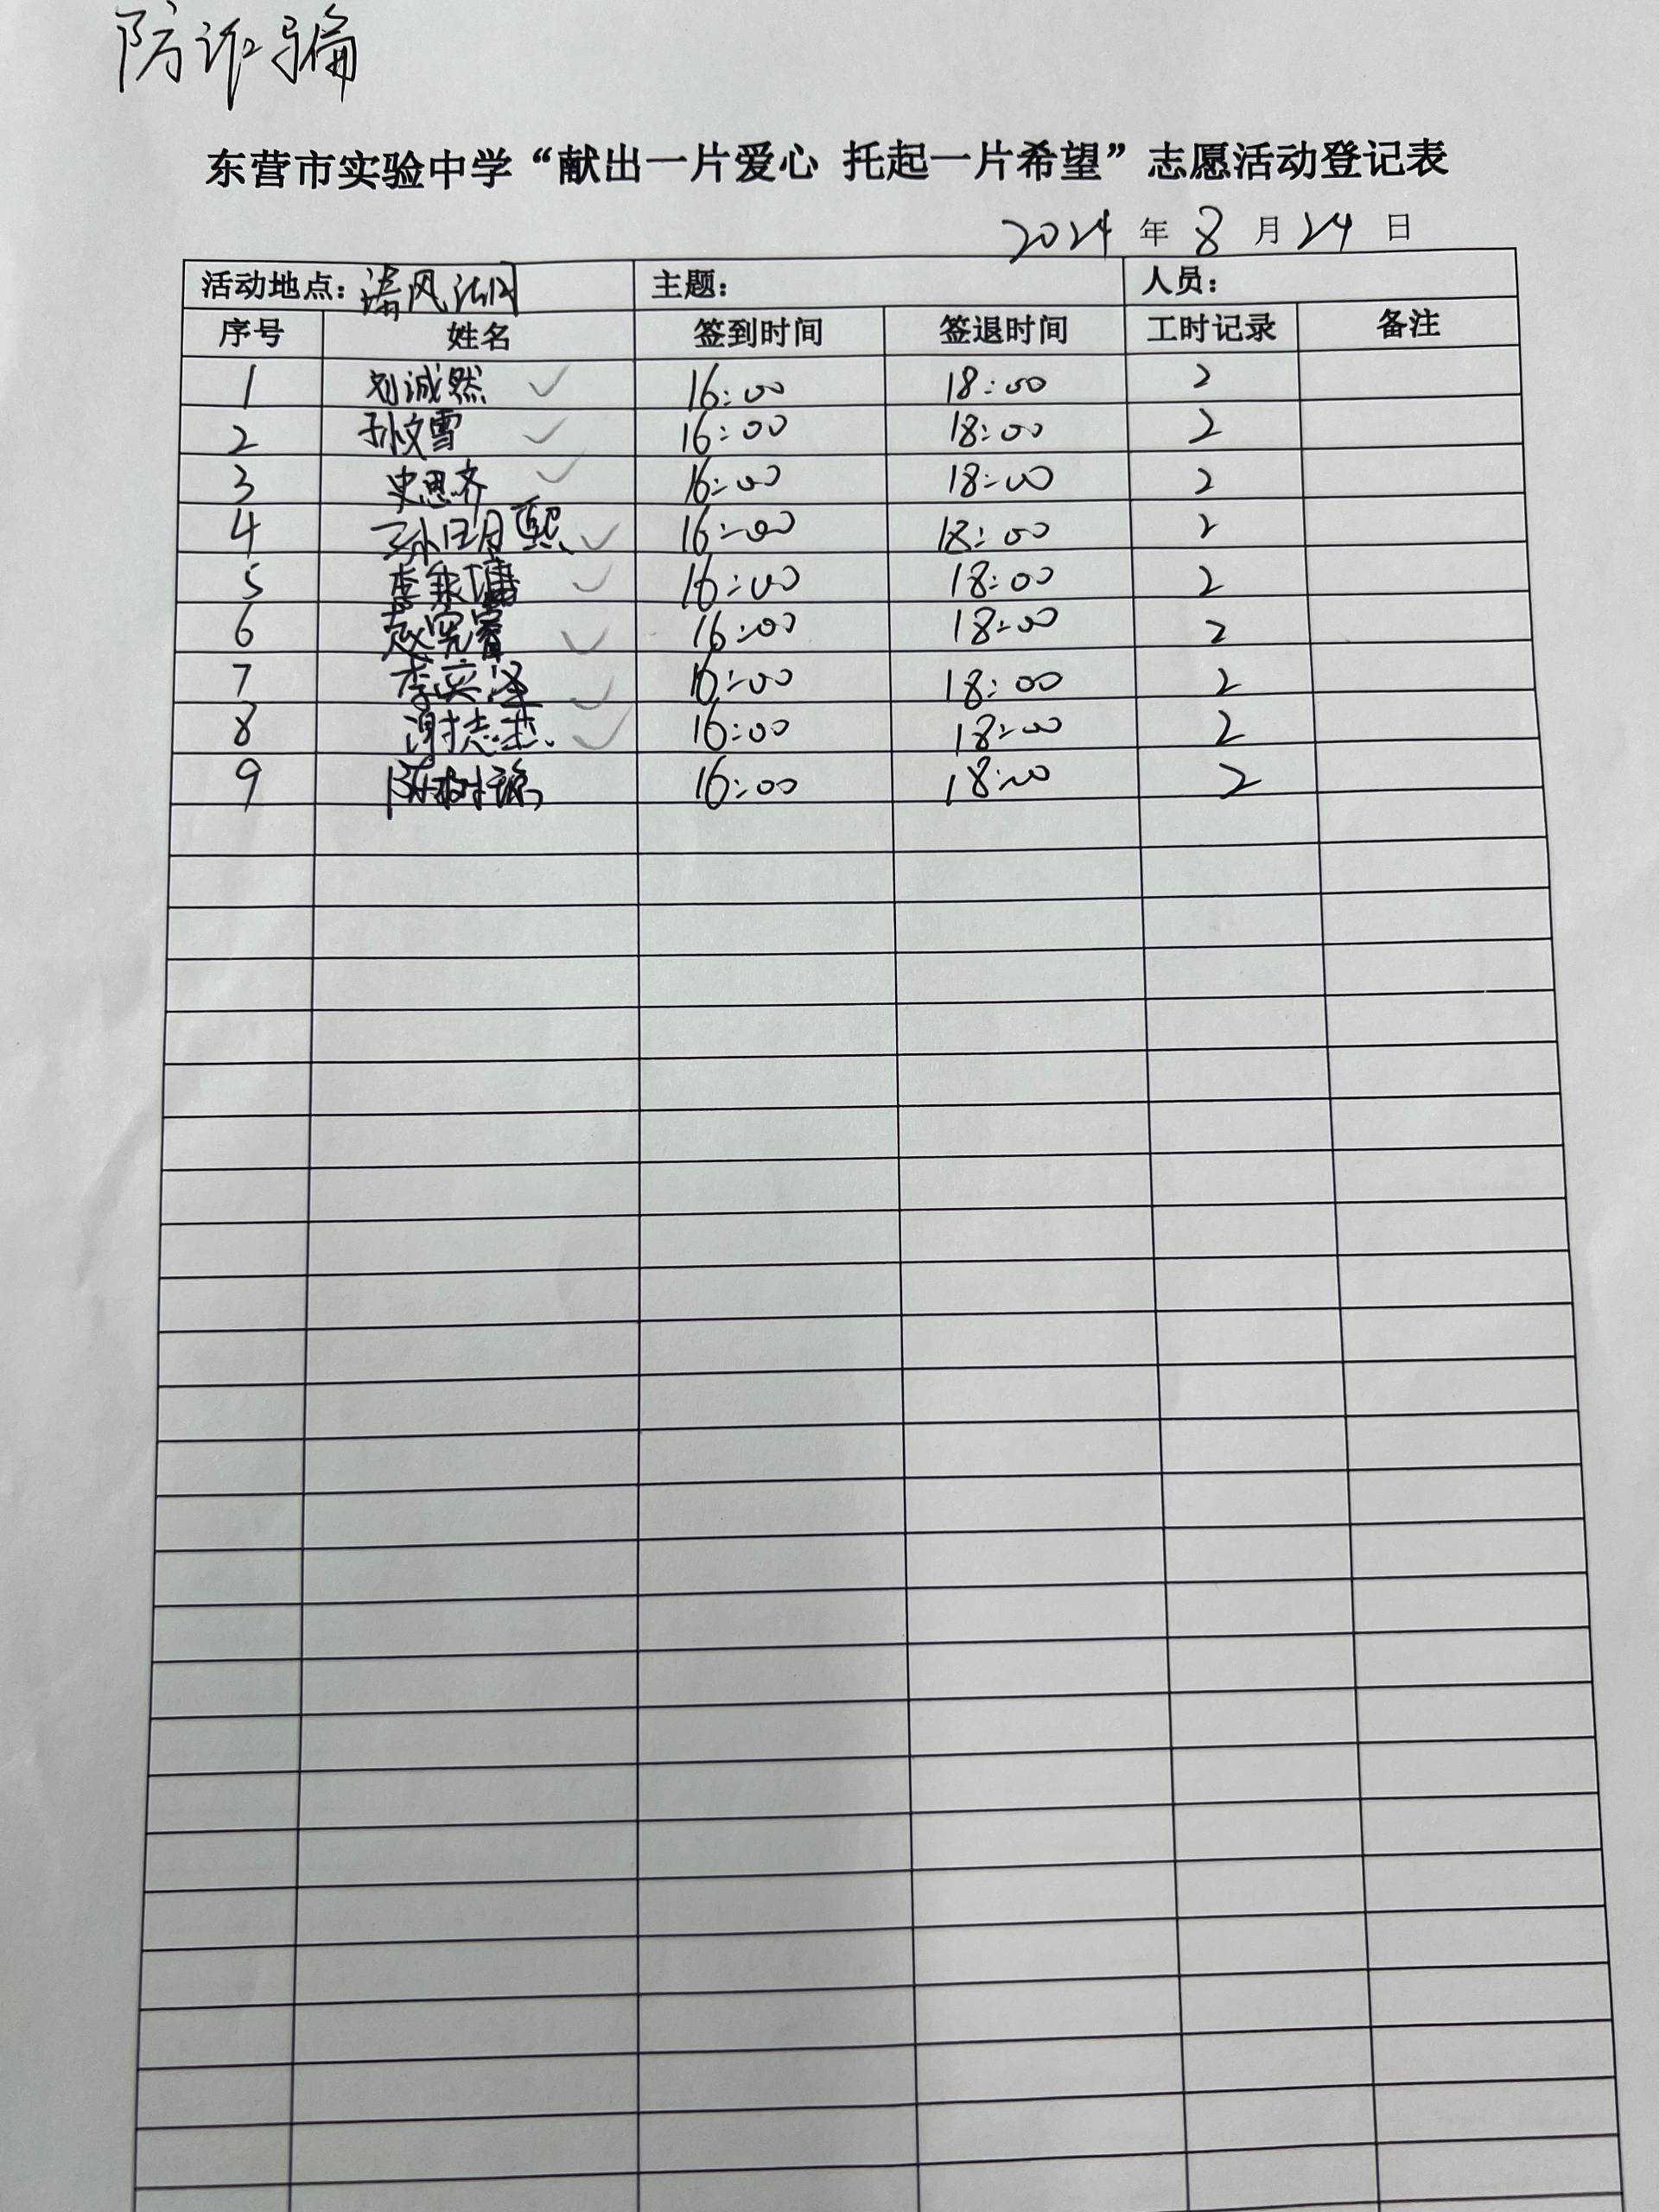 防诈骗
东营市实验中学“献出一片爱心 托起一片希望”志愿活动登记表
2024 年 8 月 24 日
活动地点：清风湖 主题： 人员：
序号 姓名 签到时间 签退时间 工时记录 备注
1 刘诚然 ✓ 16:00 18:00 2
2 孙文雪 ✓ 16:00 18:00 2
3 史思齐 ✓ 16:00 18:00 2
4 孙明熙 ✓ 16:00 18:00 2
5 ✓ 16:00 18:00 2
6 ✓ 16:00 18:00 2
7 李奕泽 ✓ 16:00 18:00 2
8 谢志杰 ✓ 16:00 18:00 2
9 16:00 18:00 2